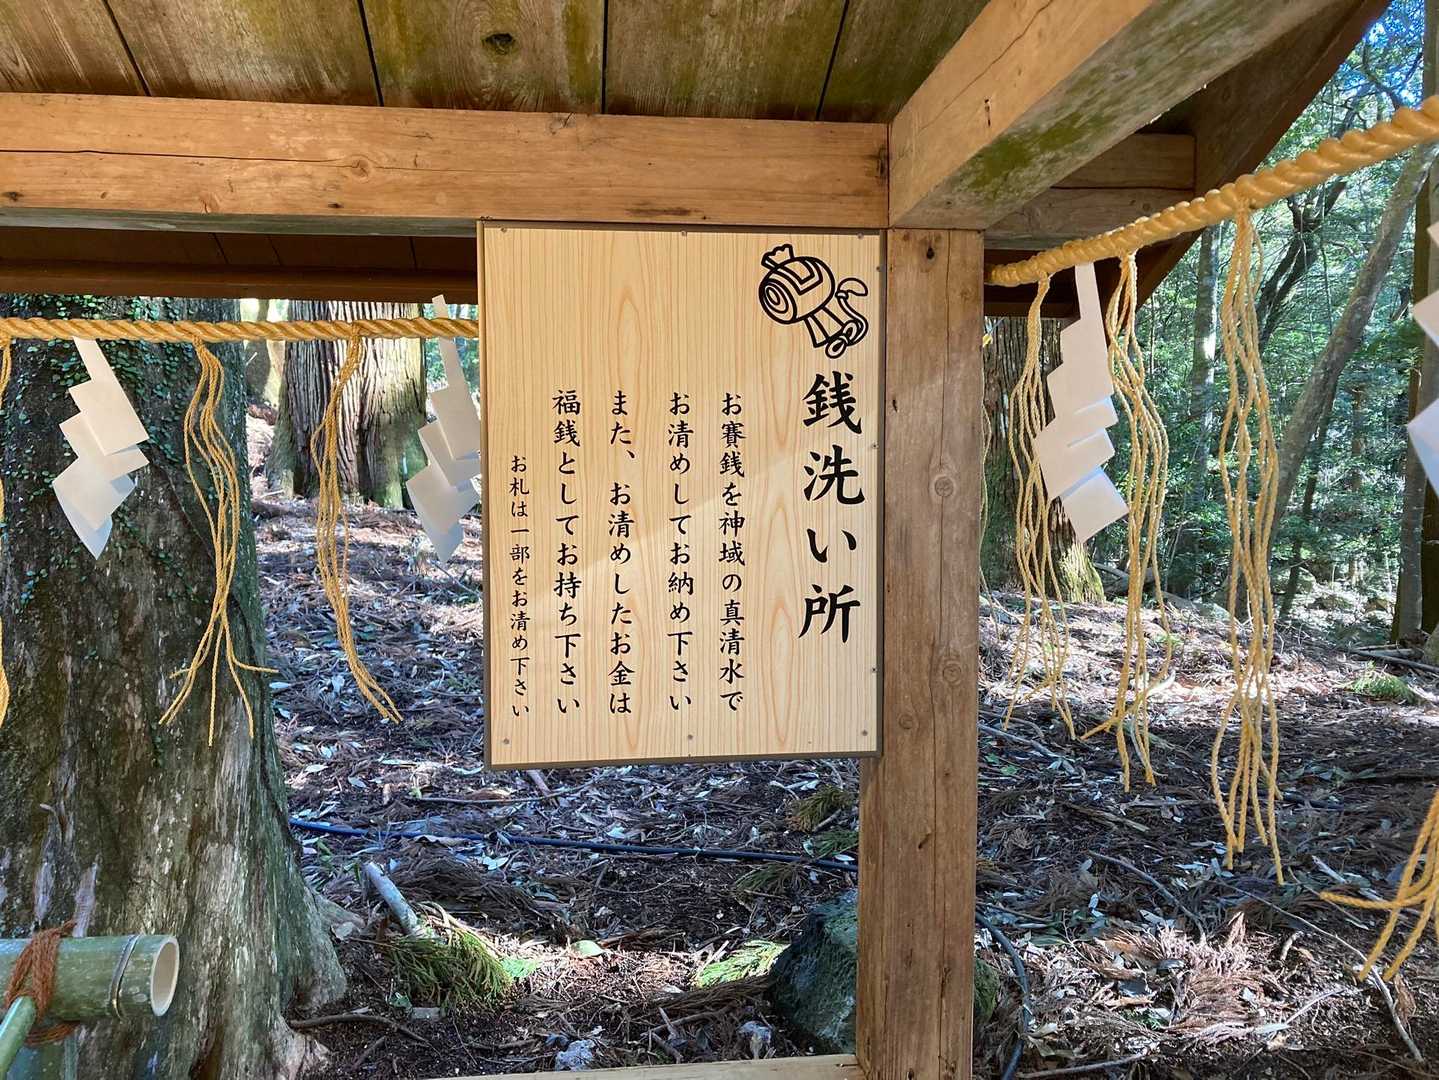 銭洗い所
お賽銭を神域の真清水で
お清めしてお納め下さい
また、お清めしたお金は
福銭としてお持ち下さい
お札は一部をお清め下さい